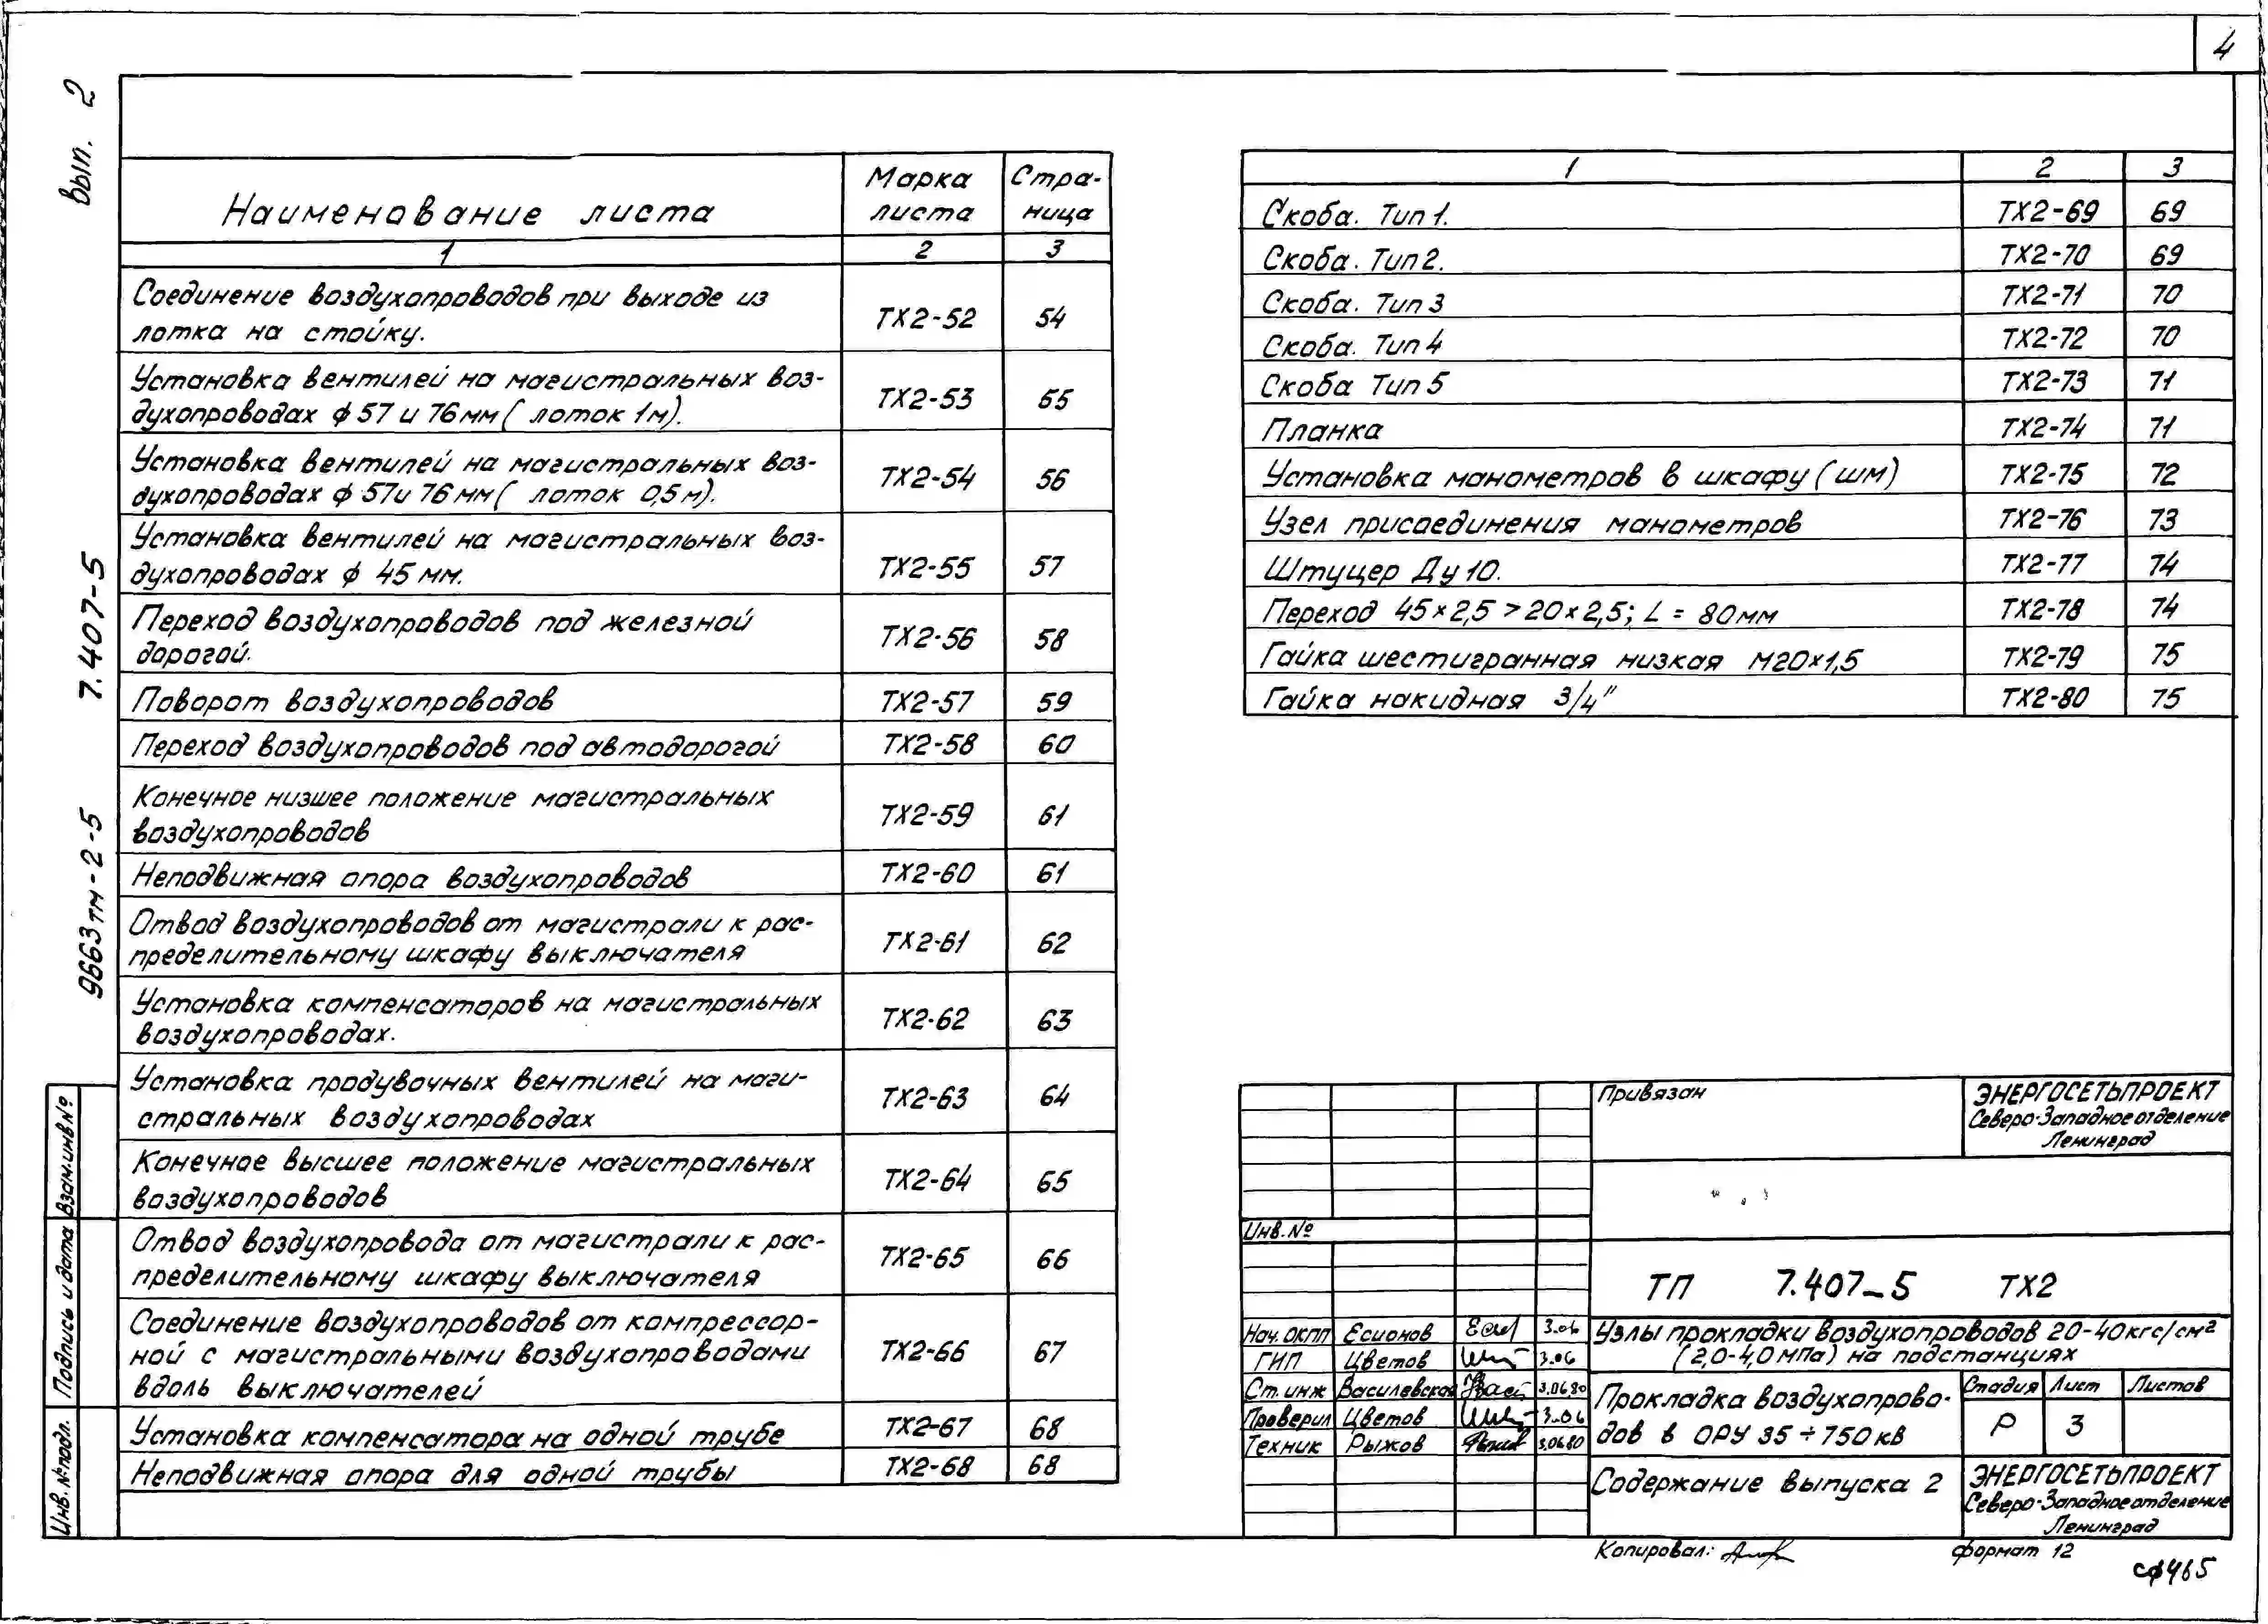 4
Вып. 2
7.407-5
9663тм-2-5
Наименование листа
Марка листа
Стра-ница
1 2 3
Соединение воздухопроводов при выходе из
лотка на стойку. ТХ2-52 54
Установка вентилей на магистральных воз-
духопроводах ф 57 и 76 мм ( лоток 1м). ТХ2-53 55
Установка вентилей на магистральных воз-
духопроводах ф 57и 76 мм ( лоток 0,5 м). ТХ2-54 56
Установка вентилей на магистральных воз-
духопроводах ф 45 мм. ТХ2-55 57
Переход воздухопроводов под железной
дорогой. ТХ2-56 58
Поворот воздухопроводов ТХ2-57 59
Переход воздухопроводов под автодорогой ТХ2-58 60
Конечное низшее положение магистральных
воздухопроводов ТХ2-59 61
Неподвижная опора воздухопроводов ТХ2-60 61
Отвод воздухопроводов от магистрали к рас-
пределительному шкафу выключателя ТХ2-61 62
Установка компенсаторов на магистральных
воздухопроводах. ТХ2-62 63
Установка продувочных вентилей на маги-
стральных воздухопроводах ТХ2-63 64
Конечное высшее положение магистральных
воздухопроводов ТХ2-64 65
Отвод воздухопровода от магистрали к рас-
пределительному шкафу выключателя ТХ2-65 66
Соединение воздухопроводов от компрессор-
ной с магистральными воздухопроводами
вдоль выключателей ТХ2-66 67
Установка компенсатора на одной трубе ТХ2-67 68
Неподвижная опора для одной трубы ТХ2-68 68
1 2 3
Скоба. Тип 1. ТХ2-69 69
Скоба. Тип 2. ТХ2-70 69
Скоба. Тип 3 ТХ2-71 70
Скоба. Тип 4 ТХ2-72 70
Скоба Тип 5 ТХ2-73 71
Планка ТХ2-74 71
Установка манометров в шкафу (шм) ТХ2-75 72
Узел присоединения манометров ТХ2-76 73
Штуцер Ду 10. ТХ2-77 74
Переход 45×2,5 > 20×2,5; L = 80мм ТХ2-78 74
Гайка шестигранная низкая М20×1,5 ТХ2-79 75
Гайка накидная 3/4" ТХ2-80 75
Взам.инв№
Подпись и дата
Инв.№подл.
Привязан
ЭНЕРГОСЕТЬПРОЕКТ
Северо-Западное отделение
Ленинград
Инв.№
ТП 7.407-5 ТХ2
Нач. ОКПП Есионов 3.06
ГИП Цветов 3.06
Ст. инж Василевская 3.06.80
Проверил Цветов 3.06
Техник Рыжов 3.06.80
Узлы прокладки воздухопроводов 20-40кгс/см²
(2,0-4,0 мПа) на подстанциях
Прокладка воздухопрово-
дов в ОРУ 35 ÷ 750 кв
Стадия Лист Листов
Р 3
Содержание выпуска 2
ЭНЕРГОСЕТЬПРОЕКТ
Северо-Западное отделение
Ленинград
Копировал:
формат 12
сф465